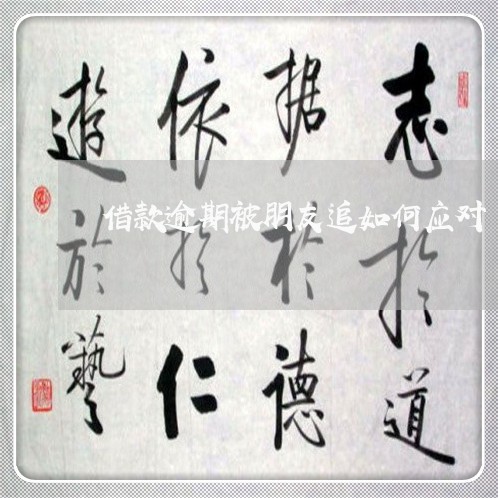 志於道
据於德
依於仁
遊於藝
借款逾期被朋友追如何应对